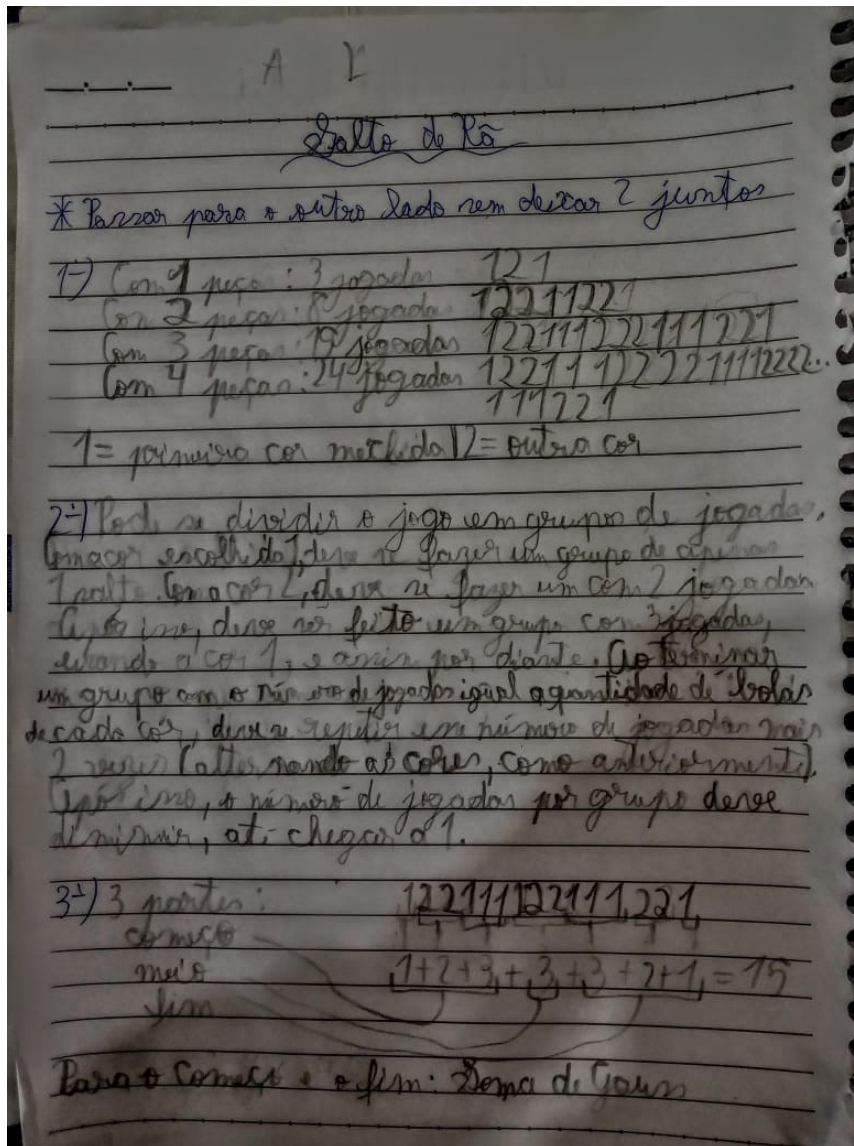 A
Salto de Rã
* Passar para o outro lado sem deixar 2 juntos
1-) Com 1 peça: 3 jogadas 121
Com 2 peças: 8 jogadas 12211221
Com 3 peças: 15 jogadas 122111222111221
Com 4 peças: 24 jogadas 122111222211112222...
111221
1 = primeira cor mechida | 2 = outra cor
2-) Pode se dividir o jogo em grupos de jogadas,
Com a cor escolhida 1, deve se fazer um grupo de apenas
1 salto. Com a cor 2, deve se fazer um com 2 jogadas
Após isso, deve ser feito um grupo com 3 jogadas,
usando a cor 1, e assim por diante. Ao terminar
um grupo com o número de jogadas igual a quantidade de bolas
de cada cor, deve se repetir esse número de jogadas mais
2 vezes (alternando as cores, como anteriormente).
Após isso, o número de jogadas por grupo deve
diminuir, até chegar a 1.
3-) 3 partes: 122111122111221
começo
meio 1+2+3+3+3+2+1 = 15
fim
Para o começo e o fim: Soma de Gauss